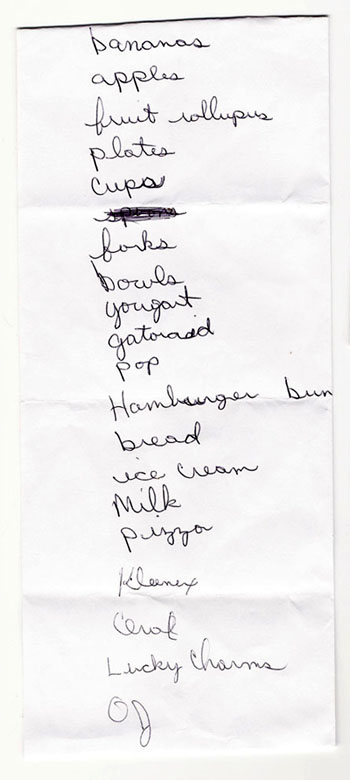 bananas
apples
fruit rollupus
plates
cups
forks
bowls
yougart
gatoraid
pop
Hamburger bun
bread
ice cream
Milk
pizza
Kleenex
Ceral
Lucky Charms
OJ